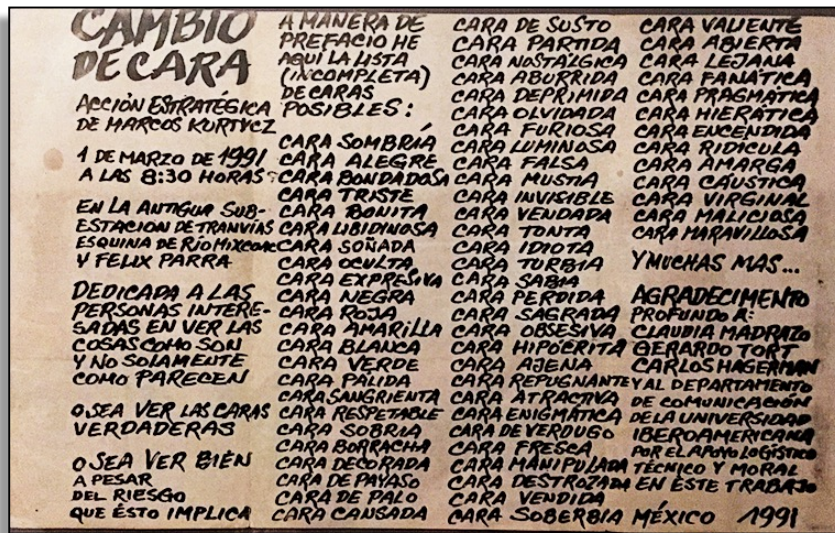 CAMBIO
DE CARA
ACCIÓN ESTRATÉGICA
DE MARCOS KURTYCZ
1 DE MARZO DE 1991
A LAS 8:30 HORAS
EN LA ANTIGUA SUB-
ESTACION DE TRANVÍAS
ESQUINA DE RÍO MIXCOAC
Y FELIX PARRA
DEDICADA A LAS
PERSONAS INTERE-
SADAS EN VER LAS
COSAS COMO SON
Y NO SOLAMENTE
COMO PARECEN
O SEA VER LAS CARAS
VERDADERAS
O SEA VER BIEN
A PESAR
DEL RIESGO
QUE ÉSTO IMPLICA
A MANERA DE
PREFACIO HE
AQUÍ LA LISTA
(INCOMPLETA)
DE CARAS
POSIBLES:
CARA SOMBRÍA
CARA ALEGRE
CARA BONDADOSA
CARA TRISTE
CARA BONITA
CARA LIBIDINOSA
CARA SOÑADA
CARA OCULTA
CARA EXPRESIVA
CARA NEGRA
CARA ROJA
CARA AMARILLA
CARA BLANCA
CARA VERDE
CARA PÁLIDA
CARA SANGRIENTA
CARA RESPETABLE
CARA SOBRIA
CARA BORRACHA
CARA DECORADA
CARA DE PAYASO
CARA DE PALO
CARA CANSADA
CARA DE SUSTO
CARA PARTIDA
CARA NOSTÁLGICA
CARA ABURRIDA
CARA DEPRIMIDA
CARA OLVIDADA
CARA FURIOSA
CARA LUMINOSA
CARA FALSA
CARA MUSTIA
CARA INVISIBLE
CARA VENDADA
CARA TONTA
CARA IDIOTA
CARA TURBIA
CARA SABIA
CARA PERDIDA
CARA SAGRADA
CARA OBSESIVA
CARA HIPÓCRITA
CARA AJENA
CARA REPUGNANTE
CARA ATRACTIVA
CARA ENIGMÁTICA
CARA DE VERDUGO
CARA FRESCA
CARA MANIPULADA
CARA DESTROZADA
CARA VENDIDA
CARA SOBERBIA
CARA VALIENTE
CARA ABIERTA
CARA LEJANA
CARA FANÁTICA
CARA PRAGMÁTICA
CARA HIERÁTICA
CARA ENCENDIDA
CARA RIDÍCULA
CARA AMARGA
CARA CÁUSTICA
CARA VIRGINAL
CARA MALICIOSA
CARA MARAVILLOSA
Y MUCHAS MAS...
AGRADECIMENTO
PROFUNDO A:
CLAUDIA MADRAZO
GERARDO TORT
CARLOS HAGERMAN
Y AL DEPARTAMENTO
DE COMUNICACIÓN
DE LA UNIVERSIDAD
IBEROAMERICANA
POR EL APOYO LOGÍSTICO
TÉCNICO Y MORAL
EN ESTE TRABAJO
MÉXICO 1991